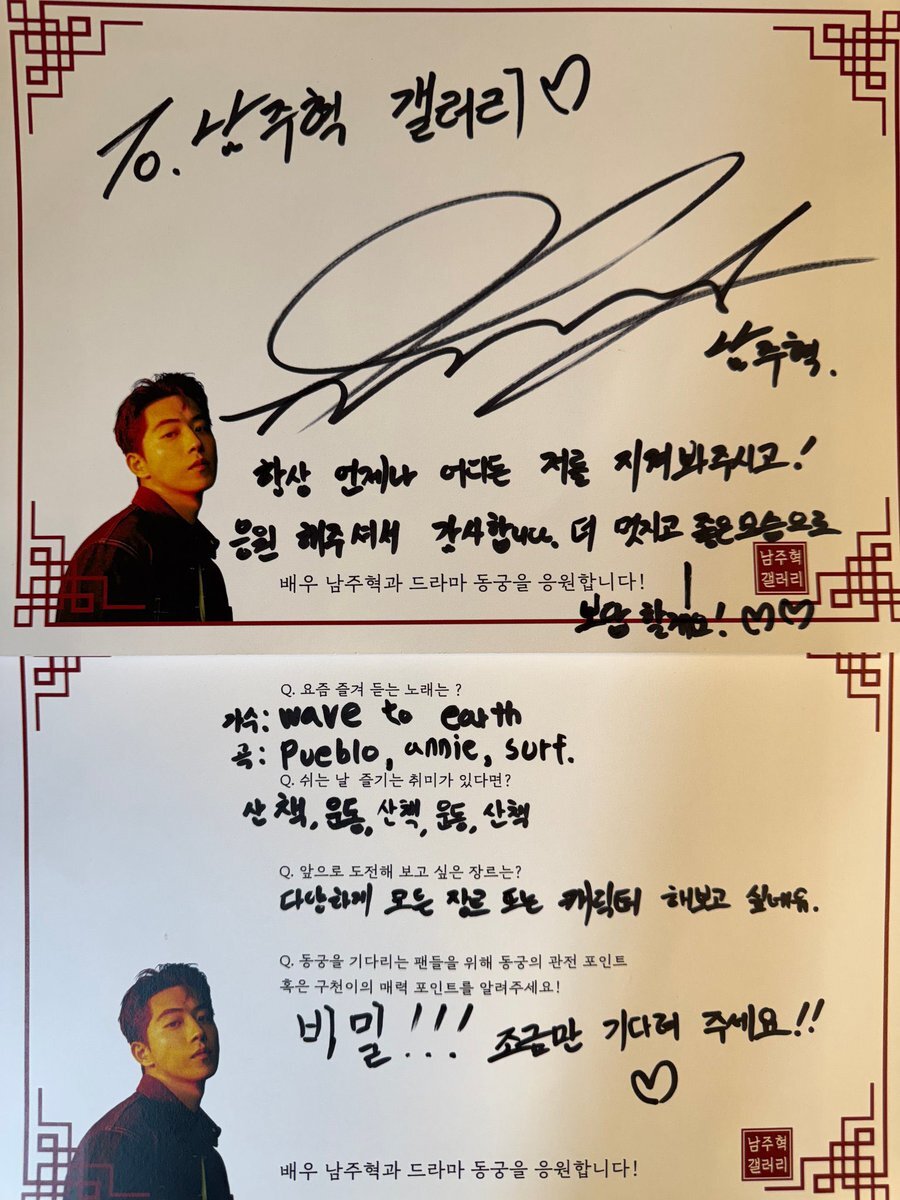 To. 남주혁 갤러리♡
남주혁.
항상 언제나 어디든 저를 지켜봐주시고!
응원 해주셔서 감사합니다. 더 멋지고 좋은모습으로
배우 남주혁과 드라마 동궁을 응원합니다!
보답 할게요! ♡♡
남주혁
갤러리
Q. 요즘 즐겨 듣는 노래는 ?
가수: wave to earth
곡: pueblo, annie, surf.
Q. 쉬는 날 즐기는 취미가 있다면?
산책, 운동, 산책, 운동, 산책
Q. 앞으로 도전해 보고 싶은 장르는?
다양하게 모든 장르 또는 캐릭터 해보고 싶네요.
Q. 동궁을 기다리는 팬들을 위해 동궁의 관전 포인트
혹은 구천이의 매력 포인트를 알려주세요!
비밀!!! 조금만 기다려 주세요!!
♡
배우 남주혁과 드라마 동궁을 응원합니다!
남주혁
갤러리